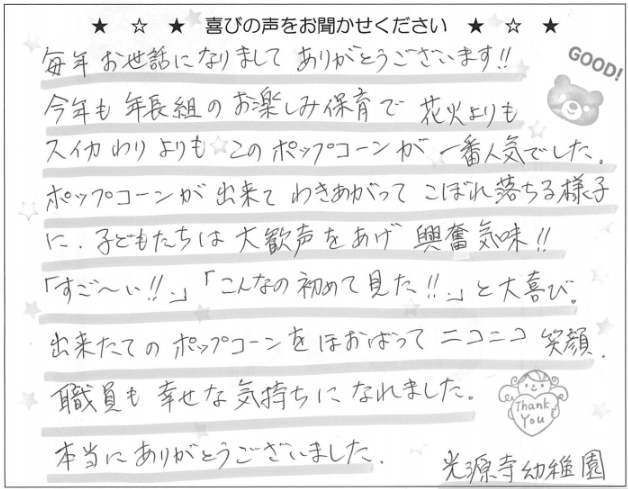 ★ ☆ ★ 喜びの声をお聞かせください ★ ☆ ★
毎年 お世話になりまして ありがとうございます!!
GOOD!
今年も 年長組の お楽しみ保育で 花火よりも
スイカわりよりも このポップコーンが 一番人気でした。
ポップコーンが 出来て わきあがって こぼれ落ちる様子
に、子どもたちは 大歓声をあげ 興奮気味!!
「すご〜い!!」「こんなの初めて見た!!」と大喜び。
出来たてのポップコーンをほおばって ニコニコ 笑顔。
職員も 幸せな気持ちに なれました。
Thank
You
本当にありがとうございました。
光源寺幼稚園